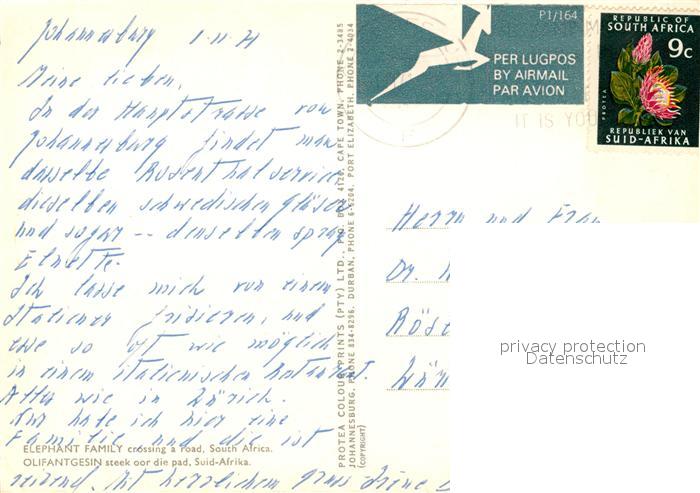 Johannesburg 1.11.71
Meine lieben,
In der Hauptstrasse von
Johannesburg findet man
dasselbe Rosenthalservice,
dieselben schwedischen Gläser
und sogar -- denselben spray
Elnette.
Ich lasse mich von einem
Italiener frisieren, und
esse so oft wie möglich
in einem italienischen Restaurant.
Alles wie in Zürich.
Nur habe ich hier eine
Familie und die ist
reizend. Mit herzlichem Gruss Irène
ELEPHANT FAMILY crossing a road, South Africa.
OLIFANTGESIN steek oor die pad, Suid-Afrika.
PROTEA COLOUR PRINTS (PTY) LTD., P.O. BOX 4126, CAPE TOWN, PHONE 2-3485
JOHANNESBURG, PHONE 834-8296, DURBAN, PHONE 6-5204, PORT ELIZABETH, PHONE 2-4034
(COPYRIGHT)
P1/164
PER LUGPOS
BY AIRMAIL
PAR AVION
REPUBLIC OF
SOUTH AFRICA
9c
PROTEA
REPUBLIEK VAN
SUID-AFRIKA
IT IS YOU
Herrn und Frau
Dr.
privacy protection
Datenschutz